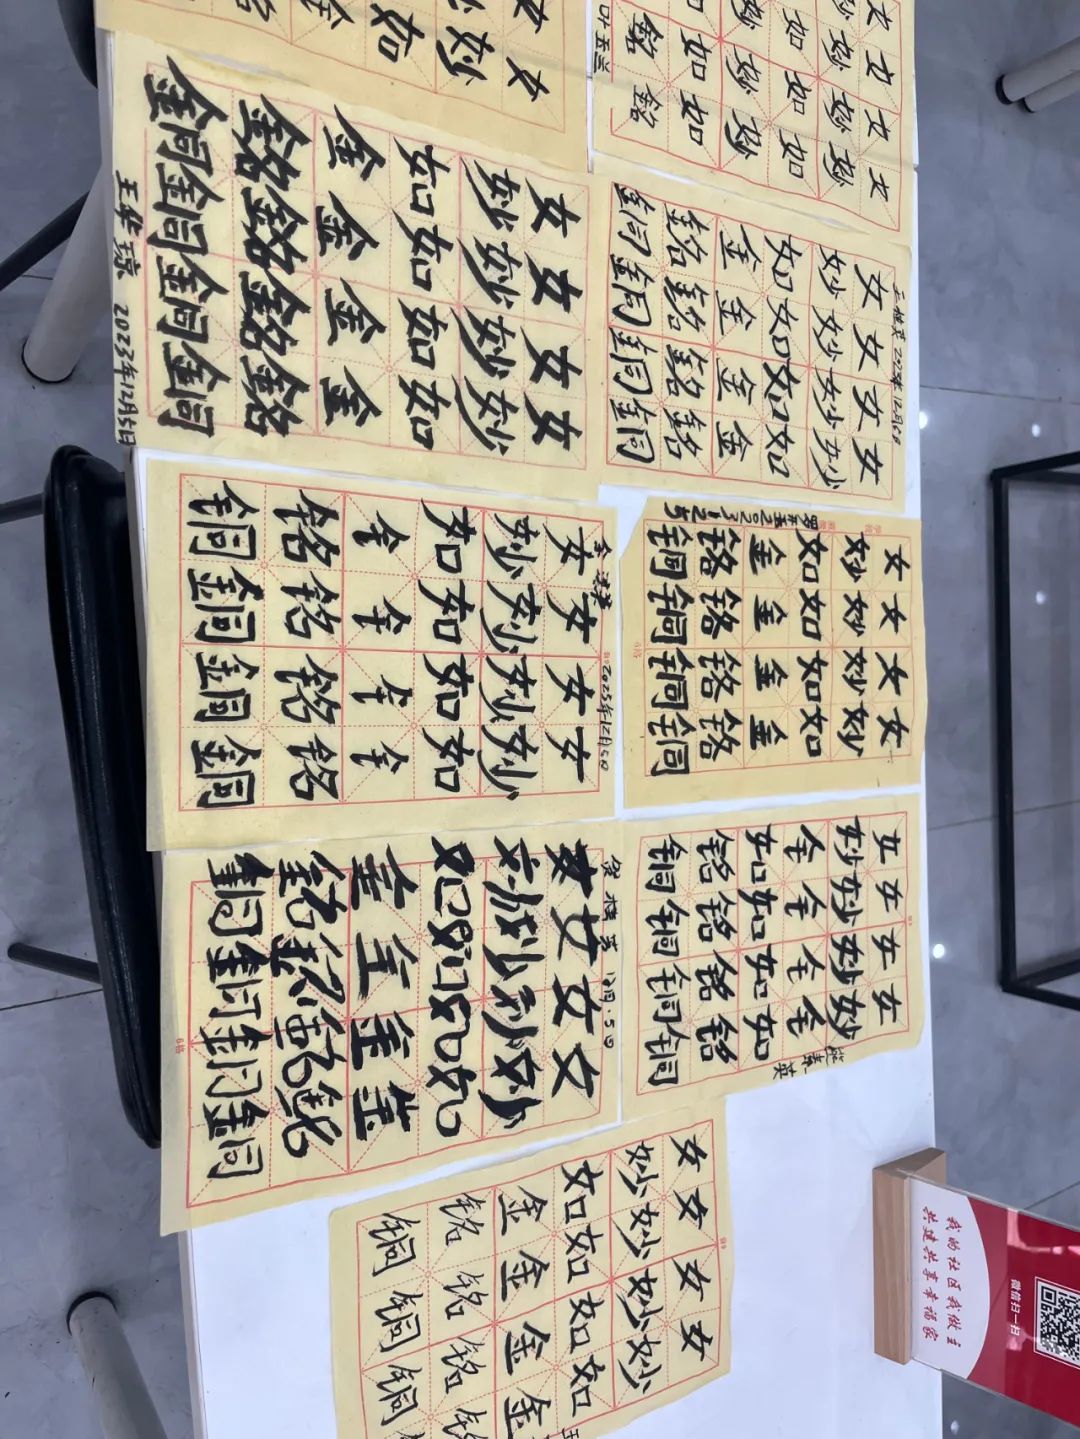 女
妙
如
女女女女
妙妙妙
如如如
如如如
銘銘
叶玉兰
女女女女
妙妙妙妙
如如如如
金金金金
銘銘銘銘
銅銅銅銅
2023年12月5日
12月5日
女女女女
妙妙妙妙
如如如如
金金金金
銘銘銘銘
銅銅銅銅
女女女女
妙妙妙妙
如如如如
金金金金
铭铭铭铭
铜銅銅銅
2023年12月5日
女女女女
妙妙妙妙
如如如如
金金金金
铭铭铭铭
铜铜铜铜
女女女女
妙妙妙妙
如如如如
金金金金
12月5日
女女女女
妙妙妙妙
金金金金
如如如如
铭铭铭铭
铜铜铜铜
英
女女女女
妙妙妙妙
如如如如
金金金金
铭铭铭铭
铜铜铜
我的社区我做主
共建共享幸福家
微信扫一扫